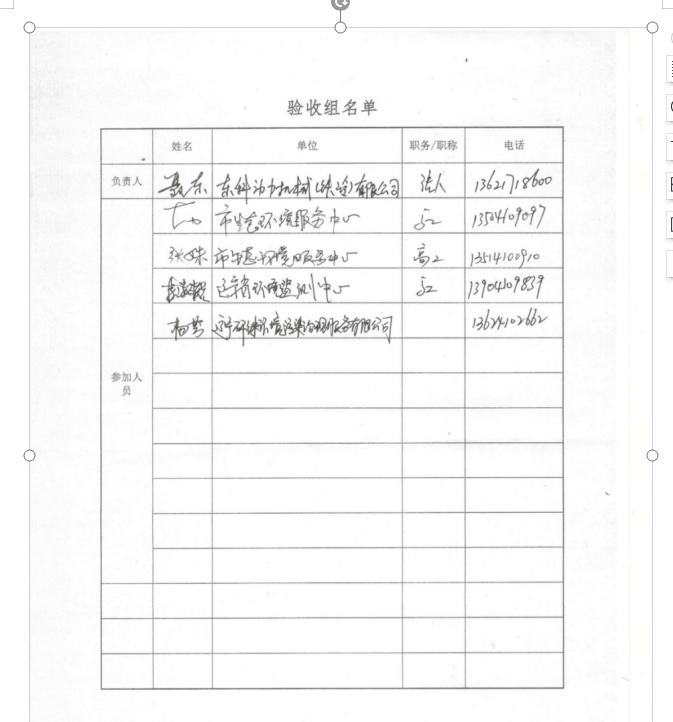 验收组名单
姓名 单位 职务/职称 电话
负责人 聂东 东科动力机械(铁岭)有限公司 法人 13621718600
市生态环境服务中心 高工 13504109097
张姝 市生态环境服务中心 高工 13514100910
辽宁省环境监测中心 高工 13904109839
杨芸 环境污染治理服务有限公司 13624102662
参加人
员